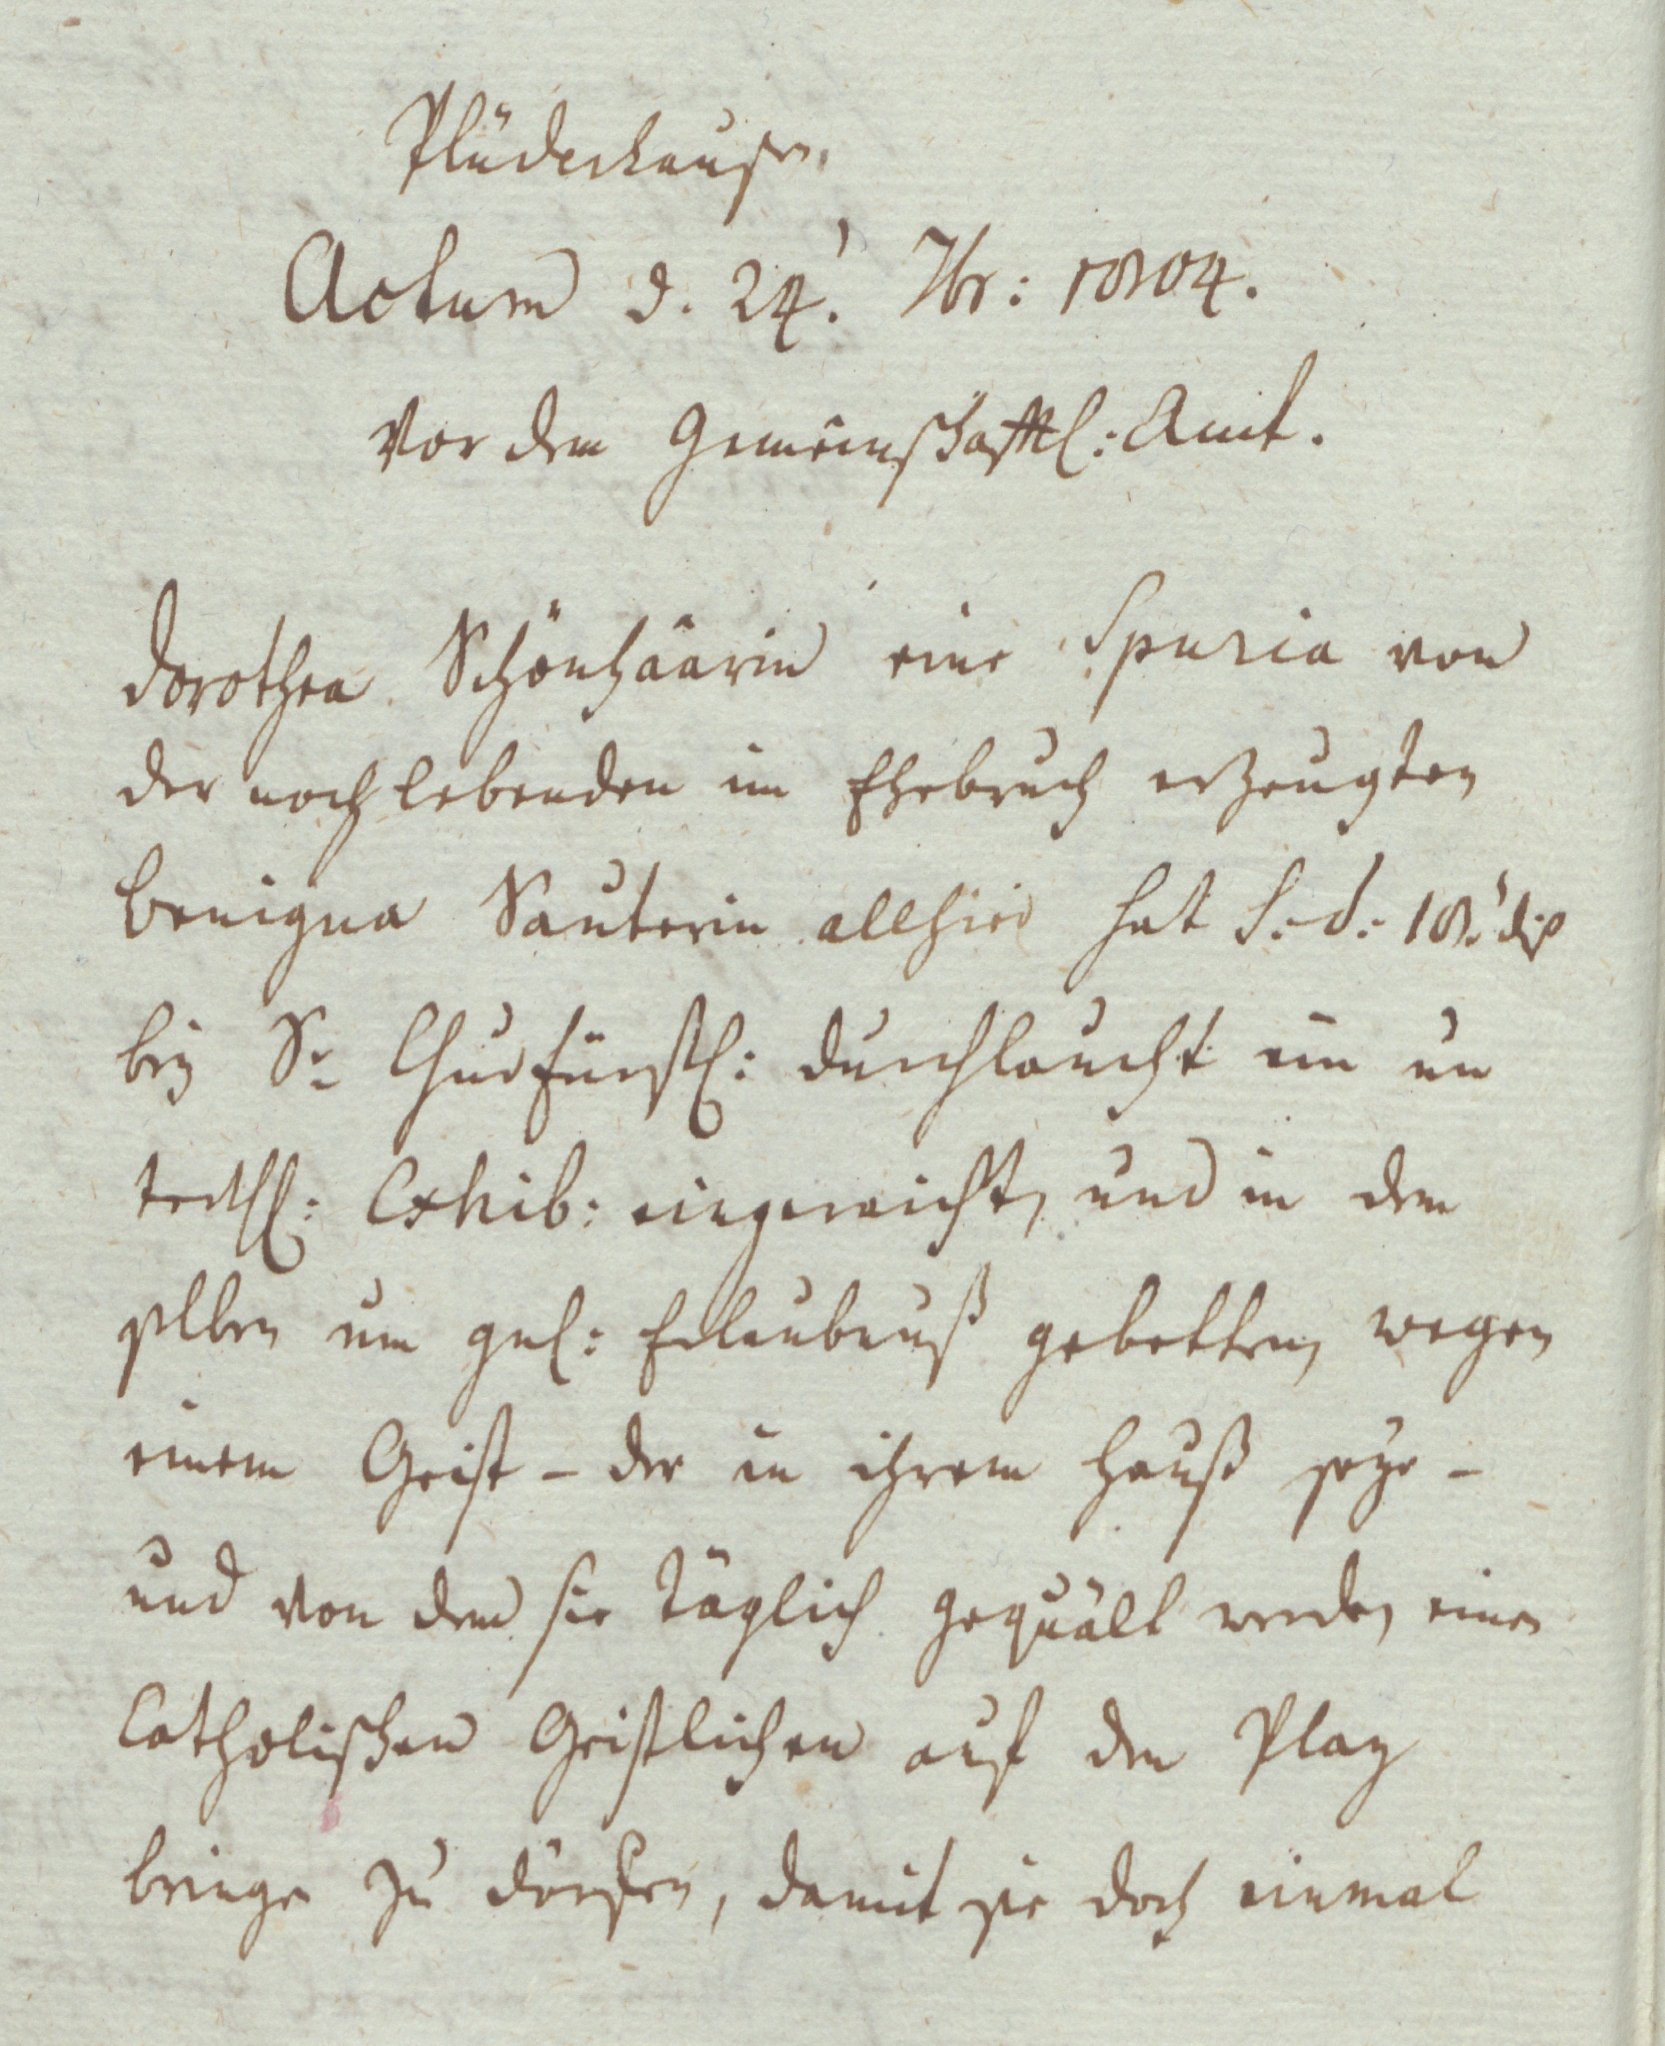 Plüderhausen.
Actum d. 24.' 7br: 1804.
Vor dem Gemeinschaftl: Amt.
Dorothea Schönhäärin eine Spuria von
der noch lebenden im Ehebruch erzeugten
Benigna Sauterin allhier hat s. d. 18.' diß
bey Sr Churfürstl: Durchlaucht ein un
terthl: Exhib: eingereicht, und in dem
selben um gnl: Erlaubnuß gebetten, wegen
einem Geist - der in ihrem Hauß seye -
und von dem sie täglich gequält werde, einen
Catholischen Geistlichen auf den Plaz
bringen zu dörfen, damit sie doch einmal